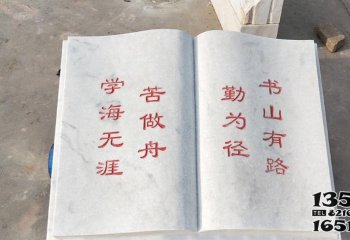 书山有路
勤为径
学海无涯
苦做舟
135
TEL
1651